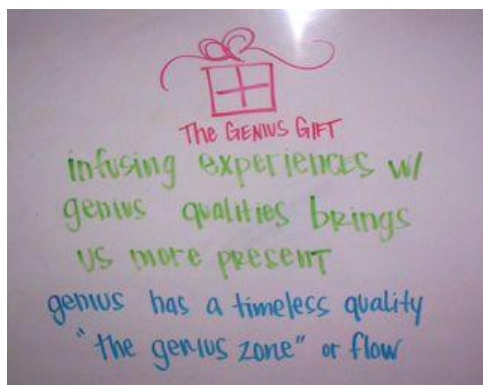 The GENIUS GIFT
infusing experiences w/
genius qualities brings
us more present
genius has a timeless quality
"the genius zone" or flow